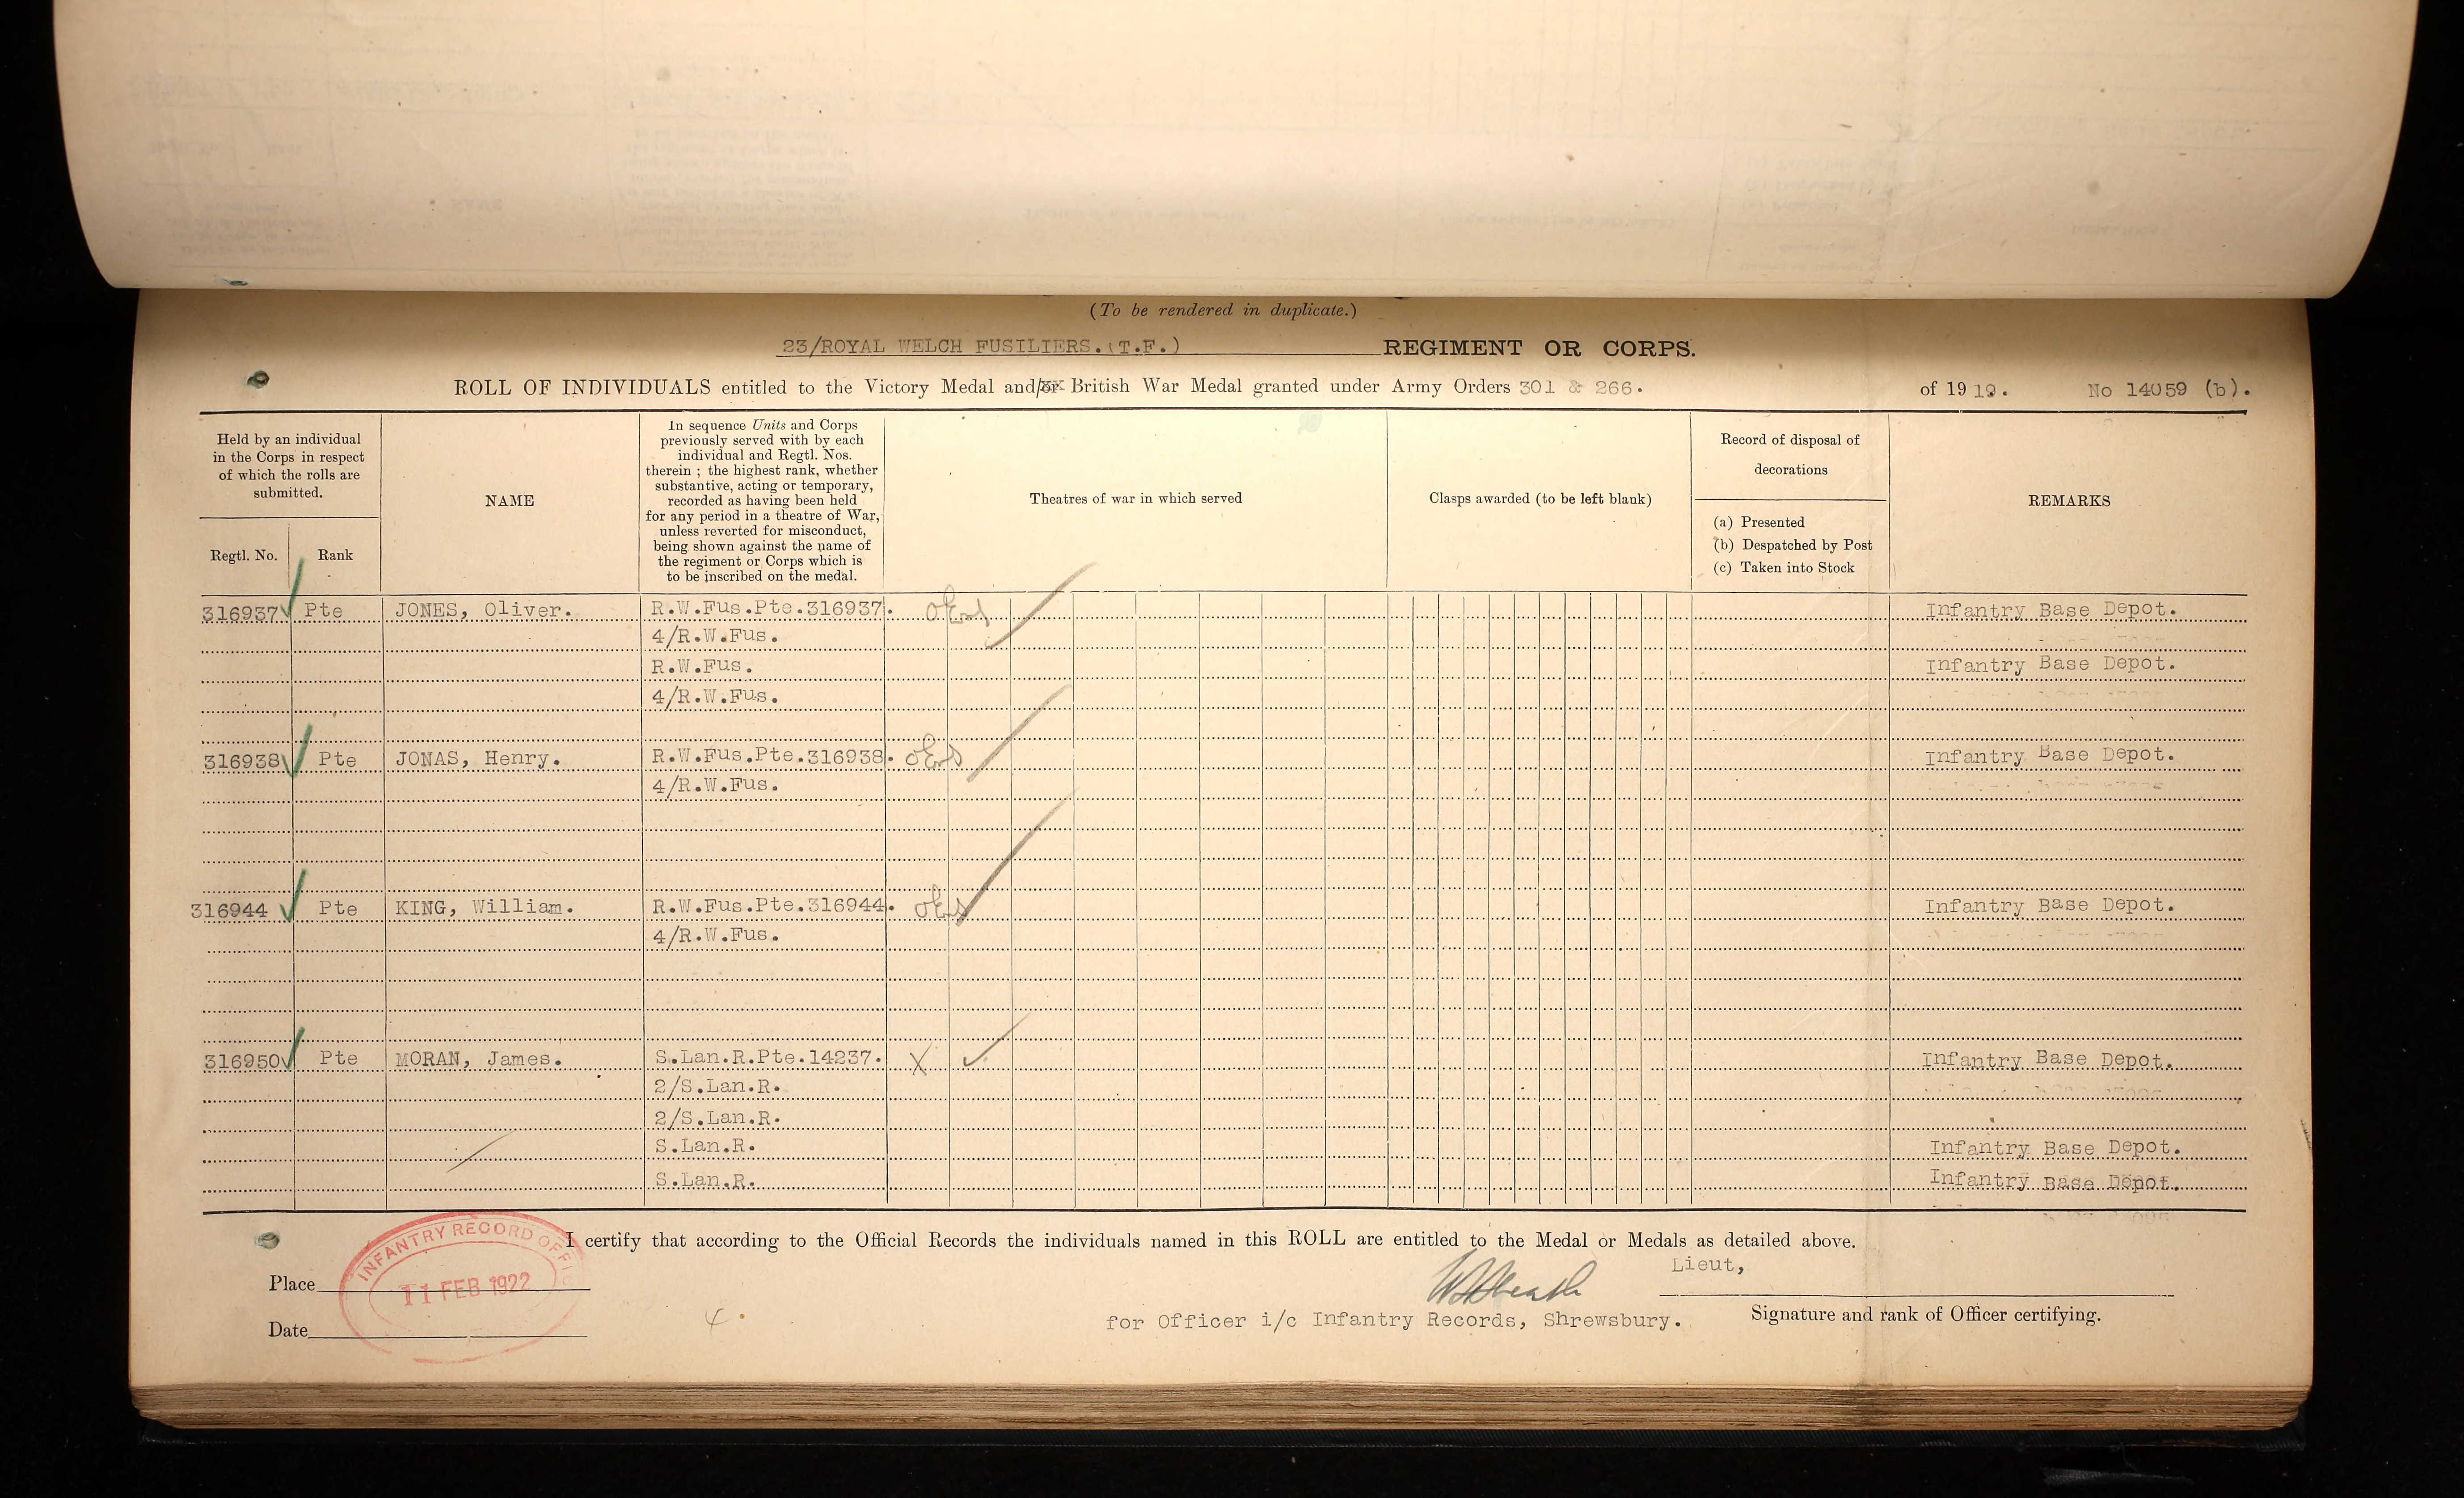 (To be rendered in duplicate.)
23/ROYAL WELCH FUSILIERS.(T.F.) REGIMENT OR CORPS.
ROLL OF INDIVIDUALS entitled to the Victory Medal and/or British War Medal granted under Army Orders 301 & 266. of 1919. No 14059 (b).
Held by an individual
in the Corps in respect
of which the rolls are
submitted.
Regtl. No. Rank
NAME
In sequence Units and Corps
previously served with by each
individual and Regtl. Nos.
therein ; the highest rank, whether
substantive, acting or temporary,
recorded as having been held
for any period in a theatre of War,
unless reverted for misconduct,
being shown against the name of
the regiment or Corps which is
to be inscribed on the medal.
Theatres of war in which served
Clasps awarded (to be left blank)
Record of disposal of
decorations
(a) Presented
(b) Despatched by Post
(c) Taken into Stock
REMARKS
316937 Pte JONES, Oliver. R.W.Fus.Pte.316937. Infantry Base Depot.
4/R.W.Fus.
R.W.Fus. Infantry Base Depot.
4/R.W.Fus.
316938 Pte JONAS, Henry. R.W.Fus.Pte.316938. Infantry Base Depot.
4/R.W.Fus.
316944 Pte KING, William. R.W.Fus.Pte.316944. Infantry Base Depot.
4/R.W.Fus.
316950 Pte MORAN, James. S.Lan.R.Pte.14237. X Infantry Base Depot.
2/S.Lan.R.
2/S.Lan.R.
S.Lan.R. Infantry Base Depot.
S.Lan.R. Infantry Base Depot.
I certify that according to the Official Records the individuals named in this ROLL are entitled to the Medal or Medals as detailed above.
INFANTRY RECORD OFFIC
11 FEB 1922
Place
Date
4.
Lieut,
for Officer i/c Infantry Records, Shrewsbury.
Signature and rank of Officer certifying.